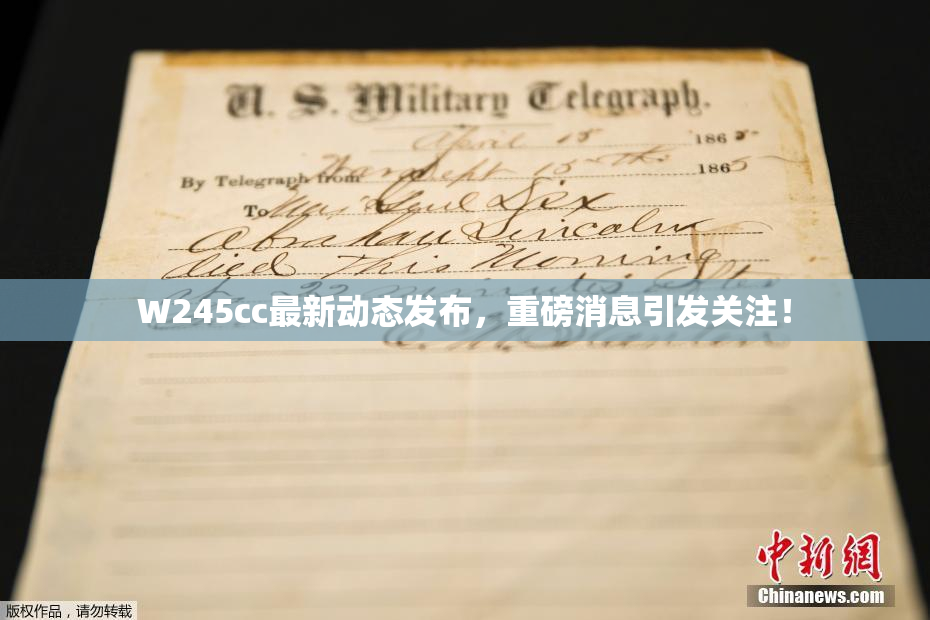 U. S. Military Telegraph.
April 15 1865
By Telegraph from War Dept 15th 1865
To Maj Genl Dix
Abraham Lincoln
died This Morning
22 minutes after
W245cc最新动态发布，重磅消息引发关注！
E. M. Stanton
中新网
Chinanews.com
版权作品，请勿转载